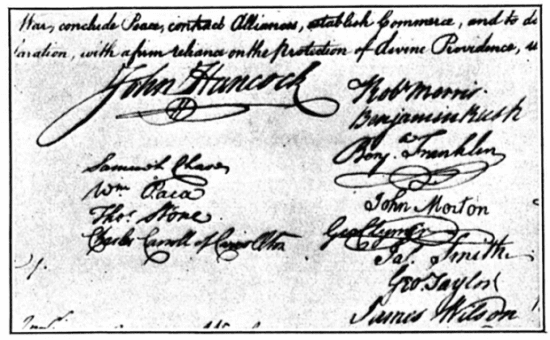 War, conclude Peace, contract Alliances, establish Commerce, and to do
laration, with a firm reliance on the protection of divine Providence,
John Hancock
Samuel Chase
Wm. Paca
Thos. Stone
Charles Carroll of Carrollton
Robt Morris
Benjamin Rush
Benj. Franklin
John Morton
Geo Clymer
Jas. Smith
Geo. Taylor
James Wilson